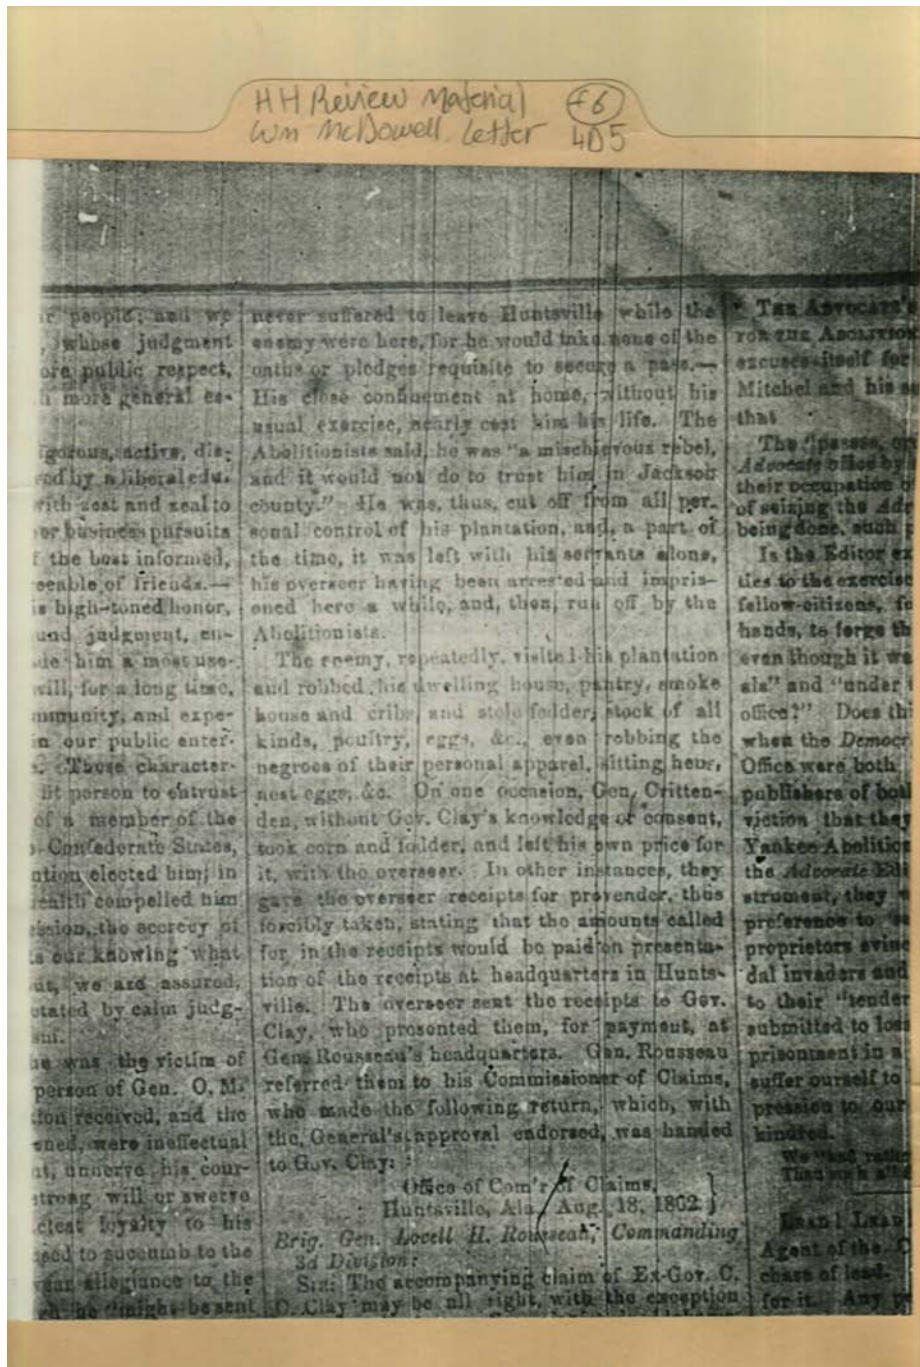 HH Review Material f6
Wm McDowell Letter 4D5
r people; and we
, whose judgment
ore public respect,
h more general es-
igorous, active, dis-
ed by a liberal edu-
with zest and zeal to
or business pursuits
f the best informed,
eeable of friends.—
is high-toned honor,
und judgment, en-
de him a most use-
will, for a long time,
mmunity, and expe-
in our public enter-
. These character-
fit person to entrust
of a member of the
Confederate States,
ntion elected him; in
health compelled him
ession, the secrecy of
s our knowing what
ut, we are assured,
ctated by calm judg-
he was the victim of
person of Gen. O. M.
tion received, and the
ened, were ineffectual
nt, unnerve his cour-
strong will or swerve
loyalty to his
sed to succumb to the
wear allegiance to the
he "might be sent
never suffered to leave Huntsville while the
enemy were here, for he would take none of the
oaths or pledges requisite to secure a pass.—
His close confinement at home, without his
usual exercise, nearly cost him his life. The
Abolitionists said, he was "a mischievous rebel,
and it would not do to trust him in Jackson
county." He was, thus, cut off from all per-
sonal control of his plantation, and, a part of
the time, it was left with his servants alone,
his overseer having been arrested and impris-
oned here a while, and, then, run off by the
Abolitionists.
The enemy, repeatedly, visited his plantation
and robbed his dwelling house, pantry, smoke
house and cribs, and stole fodder, stock of all
kinds, poultry, eggs, &c., even robbing the
negroes of their personal apparel, sitting hens,
nest eggs, &c. On one occasion, Gen. Critten-
den, without Gov. Clay's knowledge or consent,
took corn and fodder, and left his own price for
it, with the overseer. In other instances, they
gave the overseer receipts for provender, thus
forcibly taken, stating that the amounts called
for in the receipts would be paid on presenta-
tion of the receipts at headquarters in Hunts-
ville. The overseer sent the receipts to Gov.
Clay, who presented them, for payment, at
Gen. Rousseau's headquarters. Gen. Rousseau
referred them to his Commissioner of Claims,
who made the following return, which, with
the General's approval endorsed, was handed
to Gov. Clay:
Office of Com'r of Claims, }
Huntsville, Ala., Aug. 18, 1862 }
Brig. Gen. Lovell H. Rousseau, Commanding
3d Division:
SIR: The accompanying claim of Ex-Gov. C.
C. Clay may be all right, with the exception
THE ADVOCATE'S
FOR THE ABOLITION
excuses itself for
Mitchel and his
that
The "passes,
Advocate office by
their occupation
of seizing the Adv
being done, such
Is the Editor ex
ties to the exercise
fellow-citizens,
hands, to forge th
even though it wa
ala" and "under
office?" Does thi
when the Democr
Office were both
publishers of both
viction that they
Yankee Abolition
the Advocate Edi
strument, they
preference to
proprietors evinc
dal invaders and
to their "tender
submitted to loss
prisonment in a
suffer ourself to
pression to our
kindred.
We "had rathe
Than such a
LEAD! LEAD
Agent of the C
chase of lead.
for it. Any